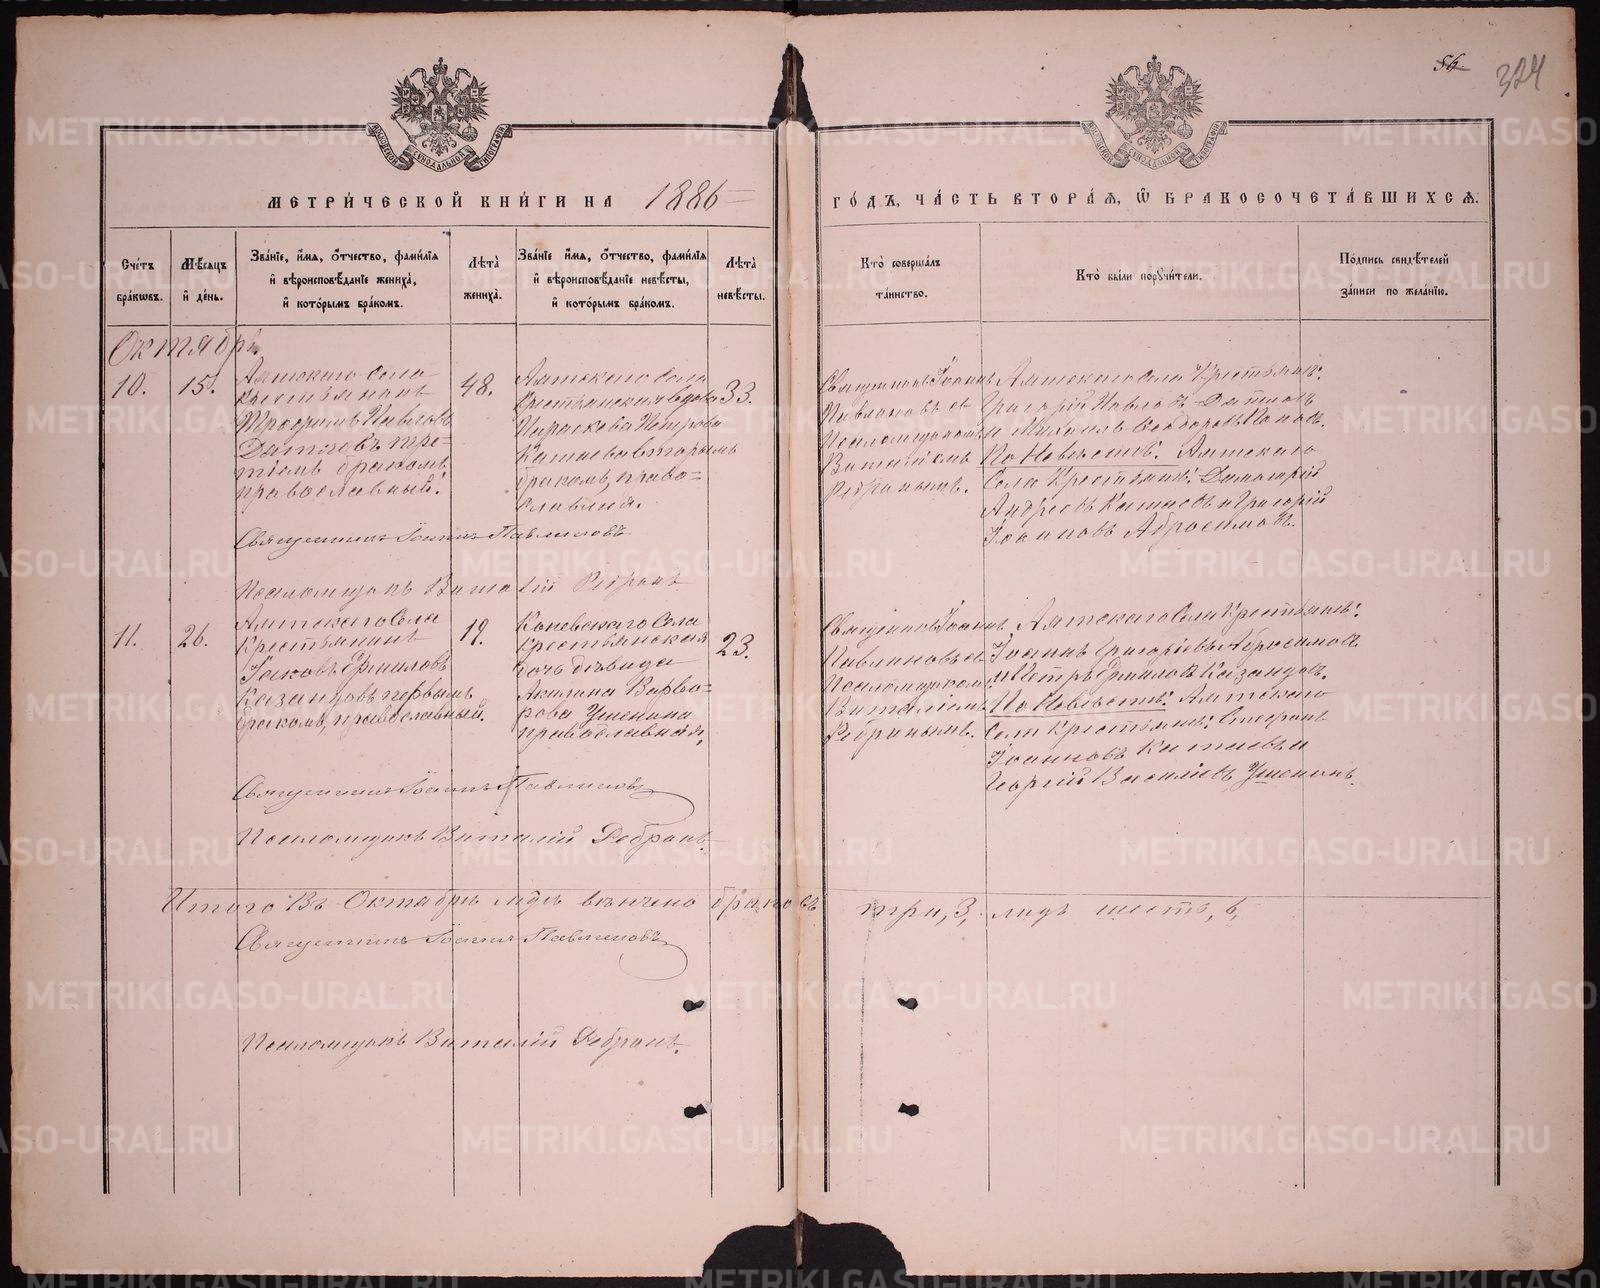 56
324
МЕТРИ́ЧЕСКОЙ КНИ́ГИ НА 1886
ГО́ДЪ, ЧА́СТЬ ВТОРА́Я, Ѽ БРАКОСОЧЕТА́ВШИХСЯ.
Сче́тъ бра́кωвъ.
Мѣ́сяцъ и҆ де́нь.
Зва́нїе, и҆́мя, ѻ҆́тчество, фами́лїя и҆ вѣроисповѣ́данїе жениха̀, и҆ кото́рымъ бра́комъ.
Лѣ́та̀ жениха̀.
Зва́нїе, и҆́мя, ѻ҆́тчество, фами́лїя и҆ вѣроисповѣ́данїе невѣ́сты, и҆ кото́рымъ бра́комъ.
Лѣ́та̀ невѣ́сты.
Кто̀ соверша́лъ та́инство.
Кто̀ бы́ли порꙋчи́тели.
По́дпись свидѣ́телей за́писи по жела́нїю.
Октябрь
10.
15.
Аятскаго Села
крестьянинъ
Трофимъ Павловъ
тре-
тьимъ бракомъ,
православный.
48.
Аятскаго Села
Крестьянская вдова
Параскева Петрова
Катаева вторымъ
бракомъ, право-
славная.
33.
Священникъ Іоаннъ
Павлиновъ съ
Псаломщикомъ
Виталіемъ
Ребринымъ.
Аятскаго Села Крестьяне:
Григорій Павловъ
и Михаилъ Ѳеодоровъ Поповъ.
По Невѣстѣ: Аятскаго
Села Крестьяне:
Андреевъ Катаевъ и Григорій
Іоанновъ Абросимовъ.
Священникъ Іоаннъ Павлиновъ
Псаломщикъ Виталій Ребринъ
11.
26.
Аятскаго Села
Крестьянинъ
Іаковъ Ермиловъ
Казанцовъ первымъ
бракомъ, православный.
19.
Коневскаго Села
крестьянская
дочь дѣвица
Акилина Варво-
рова Ушенина
православная,
23.
Священникъ Іоаннъ
Павлиновъ съ
Псаломщикомъ
Виталіемъ
Ребринымъ.
Аятскаго Села Крестьяне:
Іоаннъ Григорьевъ Абросимовъ
и Петръ Ермиловъ Казанцовъ.
По Невѣстѣ: Аятскаго
Села Крестьяне: Стефанъ
Іоанновъ Катаевъ и
Георгій Васильевъ Ушенинъ.
Священникъ Іоаннъ Павлиновъ
Псаломщикъ Виталій Ребринъ.
Итого Въ Октябрѣ м-цѣ вѣнчано браковъ три, 3, лицъ шесть, 6,
Священникъ Іоаннъ Павлиновъ
Псаломщикъ Виталій Ребринъ.
METRIKI.GASO-URAL.RU